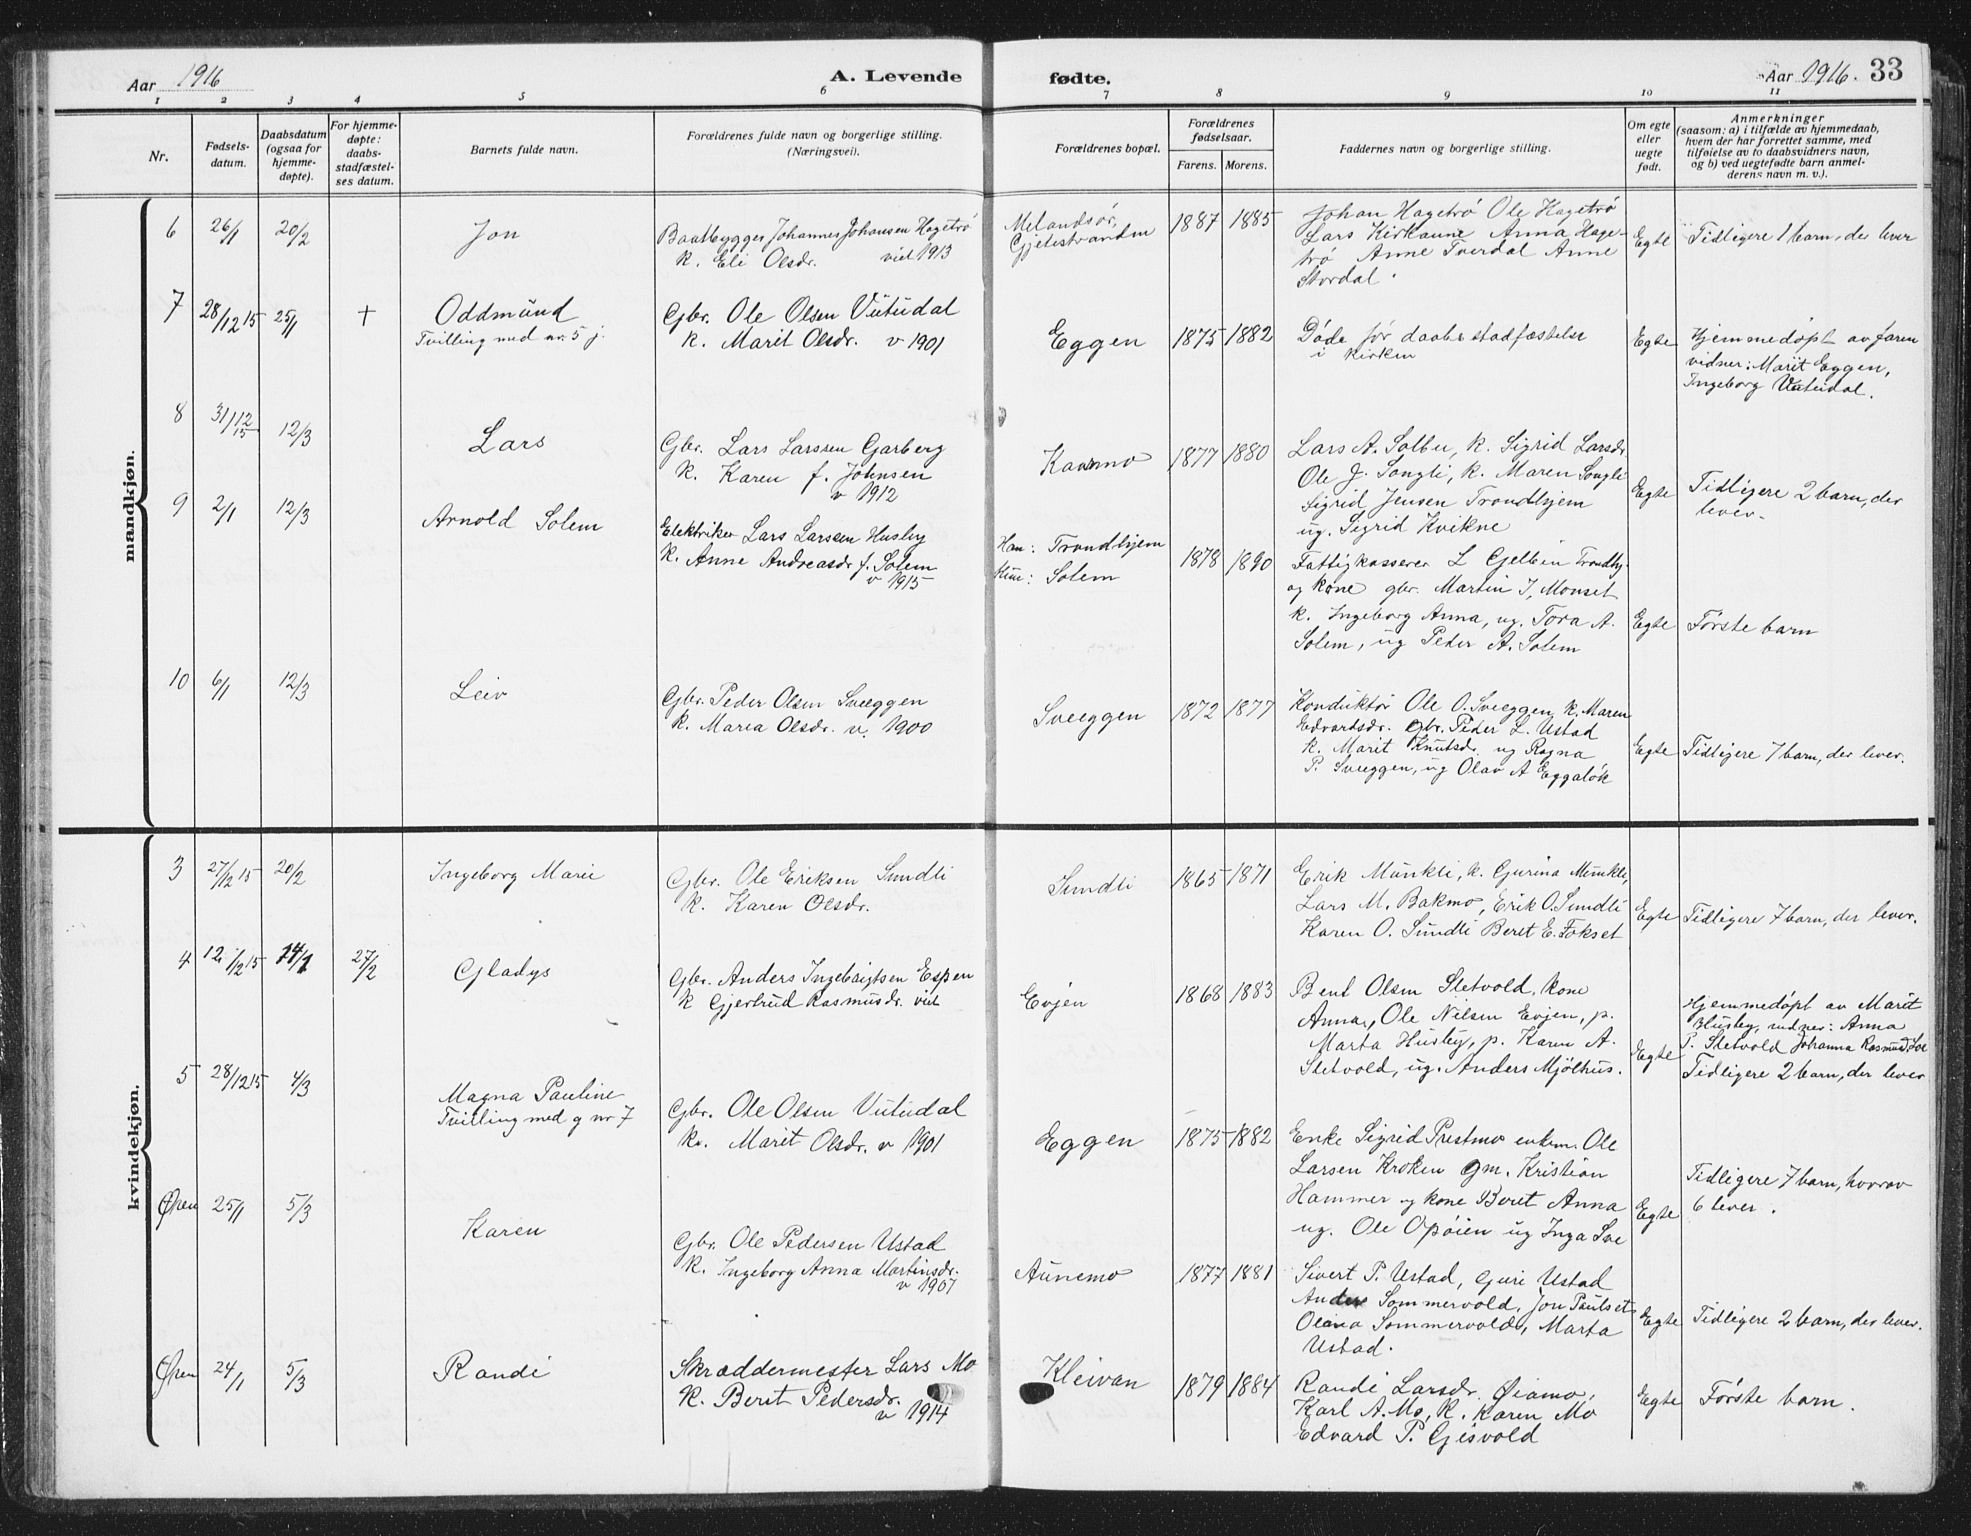 Aar 1916
A. Levende
fødte.
Aar 1916.
33
1 2 3 4 5 6 7 8 9 10 11
Nr.
Fødsels-
datum.
Daabsdatum
(ogsaa for
hjemme-
døpte).
For hjemme-
døpte:
daabs-
stadfæstel-
ses datum.
Barnets fulde navn.
Forældrenes fulde navn og borgerlige stilling.
(Næringsvei).
Forældrenes bopæl.
Forældrenes
fødselsaar.
Farens. Morens.
Faddernes navn og borgerlige stilling.
Om egte
eller
uegte
født.
Anmerkninger
(saasom: a) i tilfælde av hjemmedaab,
hvem der har forrettet samme, med
tilføielse av to daabsvidners navn,
og b) ved uegtefødte barn anmel-
derens navn m. v.).
mandkjøn.
6 26/1 20/2
Jon
Baatbygger Johannes Johansen Hagetrø
k. Eli Olsdr. viet 1913
Melandsør,
Gjelestranden
1887 1885
Johan Hagetrø Ole Hagetrø
Lars Kirkaune Anna Hage-
trø Anne Tverdal Anne
Stordal.
Egte
Tidligere 1 barn, der lever
7 28/12 15 25/1 +
Oddmund
Tvilling med nr. 5 j.
Gbr. Ole Olsen Vutudal
k. Marit Olsdr. v 1901
Eggen
1875 1882
Døde før daabsstadfæstelse
i kirken
Egte
Hjemmedøpt av faren
vidner: Marit Eggen,
Ingeborg Vutudal.
8 31/12 15 12/3
Lars
Gbr. Lars Larssen Garberg
k. Karen f. Johnsen
v 1912
Kavmo
1877 1880
Lars A. Solbu, k. Sigrid Larsdr
Ole J. Songli, k. Maren Songli
Sigrid Jensen Trondhjem
ug. Sigrid Kvikne
Egte
Tidligere 2 barn, der
lever.
9 2/1 12/3
Arnold Solem
Elektriker Lars Larssen Husby
k. Anne Andreasdr f. Solem
v 1915
Han: Trondhjem
Kun: Solem
1878 1890
Fattigkasserer L Gjelben Trondhj.
og kone gbr. Martin J. Monset
k. Ingeborg Anna, ug. Tora A.
Solem, ug Peder A. Solem
Egte
Første barn
10 6/1 12/3
Leiv
Gbr. Peder Olsen Sveeggen
k. Maria Olsdr. v. 1900
Sveeggen
1872 1877
Konduktør Ole O. Sveeggen k. Maren
Edvartsdr. gbr. Peder L. Ustad
k. Marit Knutsdr. ug Ragna
P. Sveeggen, ug Olav A Eggaløk
Egte
Tidligere 7 barn, der lever.
kvindekjøn.
3 27/12 15 20/2
Ingeborg Marie
Gbr. Ole Eriksen Sundli
k. Karen Olsdr.
Sundli
1865 1871
Erik Munkli, k. Gurina Munkli,
Lars M. Bakmo, Erik O. Sundli
Karen O. Sundli Beret E. Fokset
Egte
Tidligere 7 barn, der lever.
4 12/12 15 14/1 27/2
Gladys
Gbr. Anders Ingebrigtsen Espen
k Gjertrud Rasmusdr. viet
Evjen
1868 1883
Bent Olsen Sletvold, kone
Anna, Ole Nilsen Evjen, p.
Marta Husby, p. Karen A.
Sletvold, ug. Anders Mjølhus.
Egte
Hjemmedøpt av Marit
Husby, vidner: Anna
P. Sletvold Johanna Rasmusd. Loe
Tidligere 2 barn, der lever
5 28/12 15 4/3
Magna Pauline
Tvilling med g nr 7
Gbr. Ole Olsen Vutudal
k. Marit Olsdr. v 1901
Eggen
1875 1882
Enke Sigrid Prestmo enkem. Ole
Larsen Kroken gm. Kristian
Hammer og kone Beret Anna
ug. Ole Opøien ug Inga Loe
Egte
Tidligere 7 barn, hvorav
6 lever.
25/1 5/3
Karen
Gbr. Ole Pedersen Ustad
k. Ingeborg Anna Martinsdr.
v 1907
Aunemo
1877 1881
Sivert P. Ustad, Guri Ustad
Anders Sommervold, Jon Paulset
Olava Sommervold, Marta
Ustad.
Egte
Tidligere 2 barn, der lever.
24/1 5/3
Randi
Skræddermester Lars Mo
k. Berit Pedersdr.
v 1914
Kleivan
1879 1884
Randi Larsdr. Øiamo,
Karl A. Mo, k. Karen Mo
Edvard P. Gisvold
Egte
Første barn.